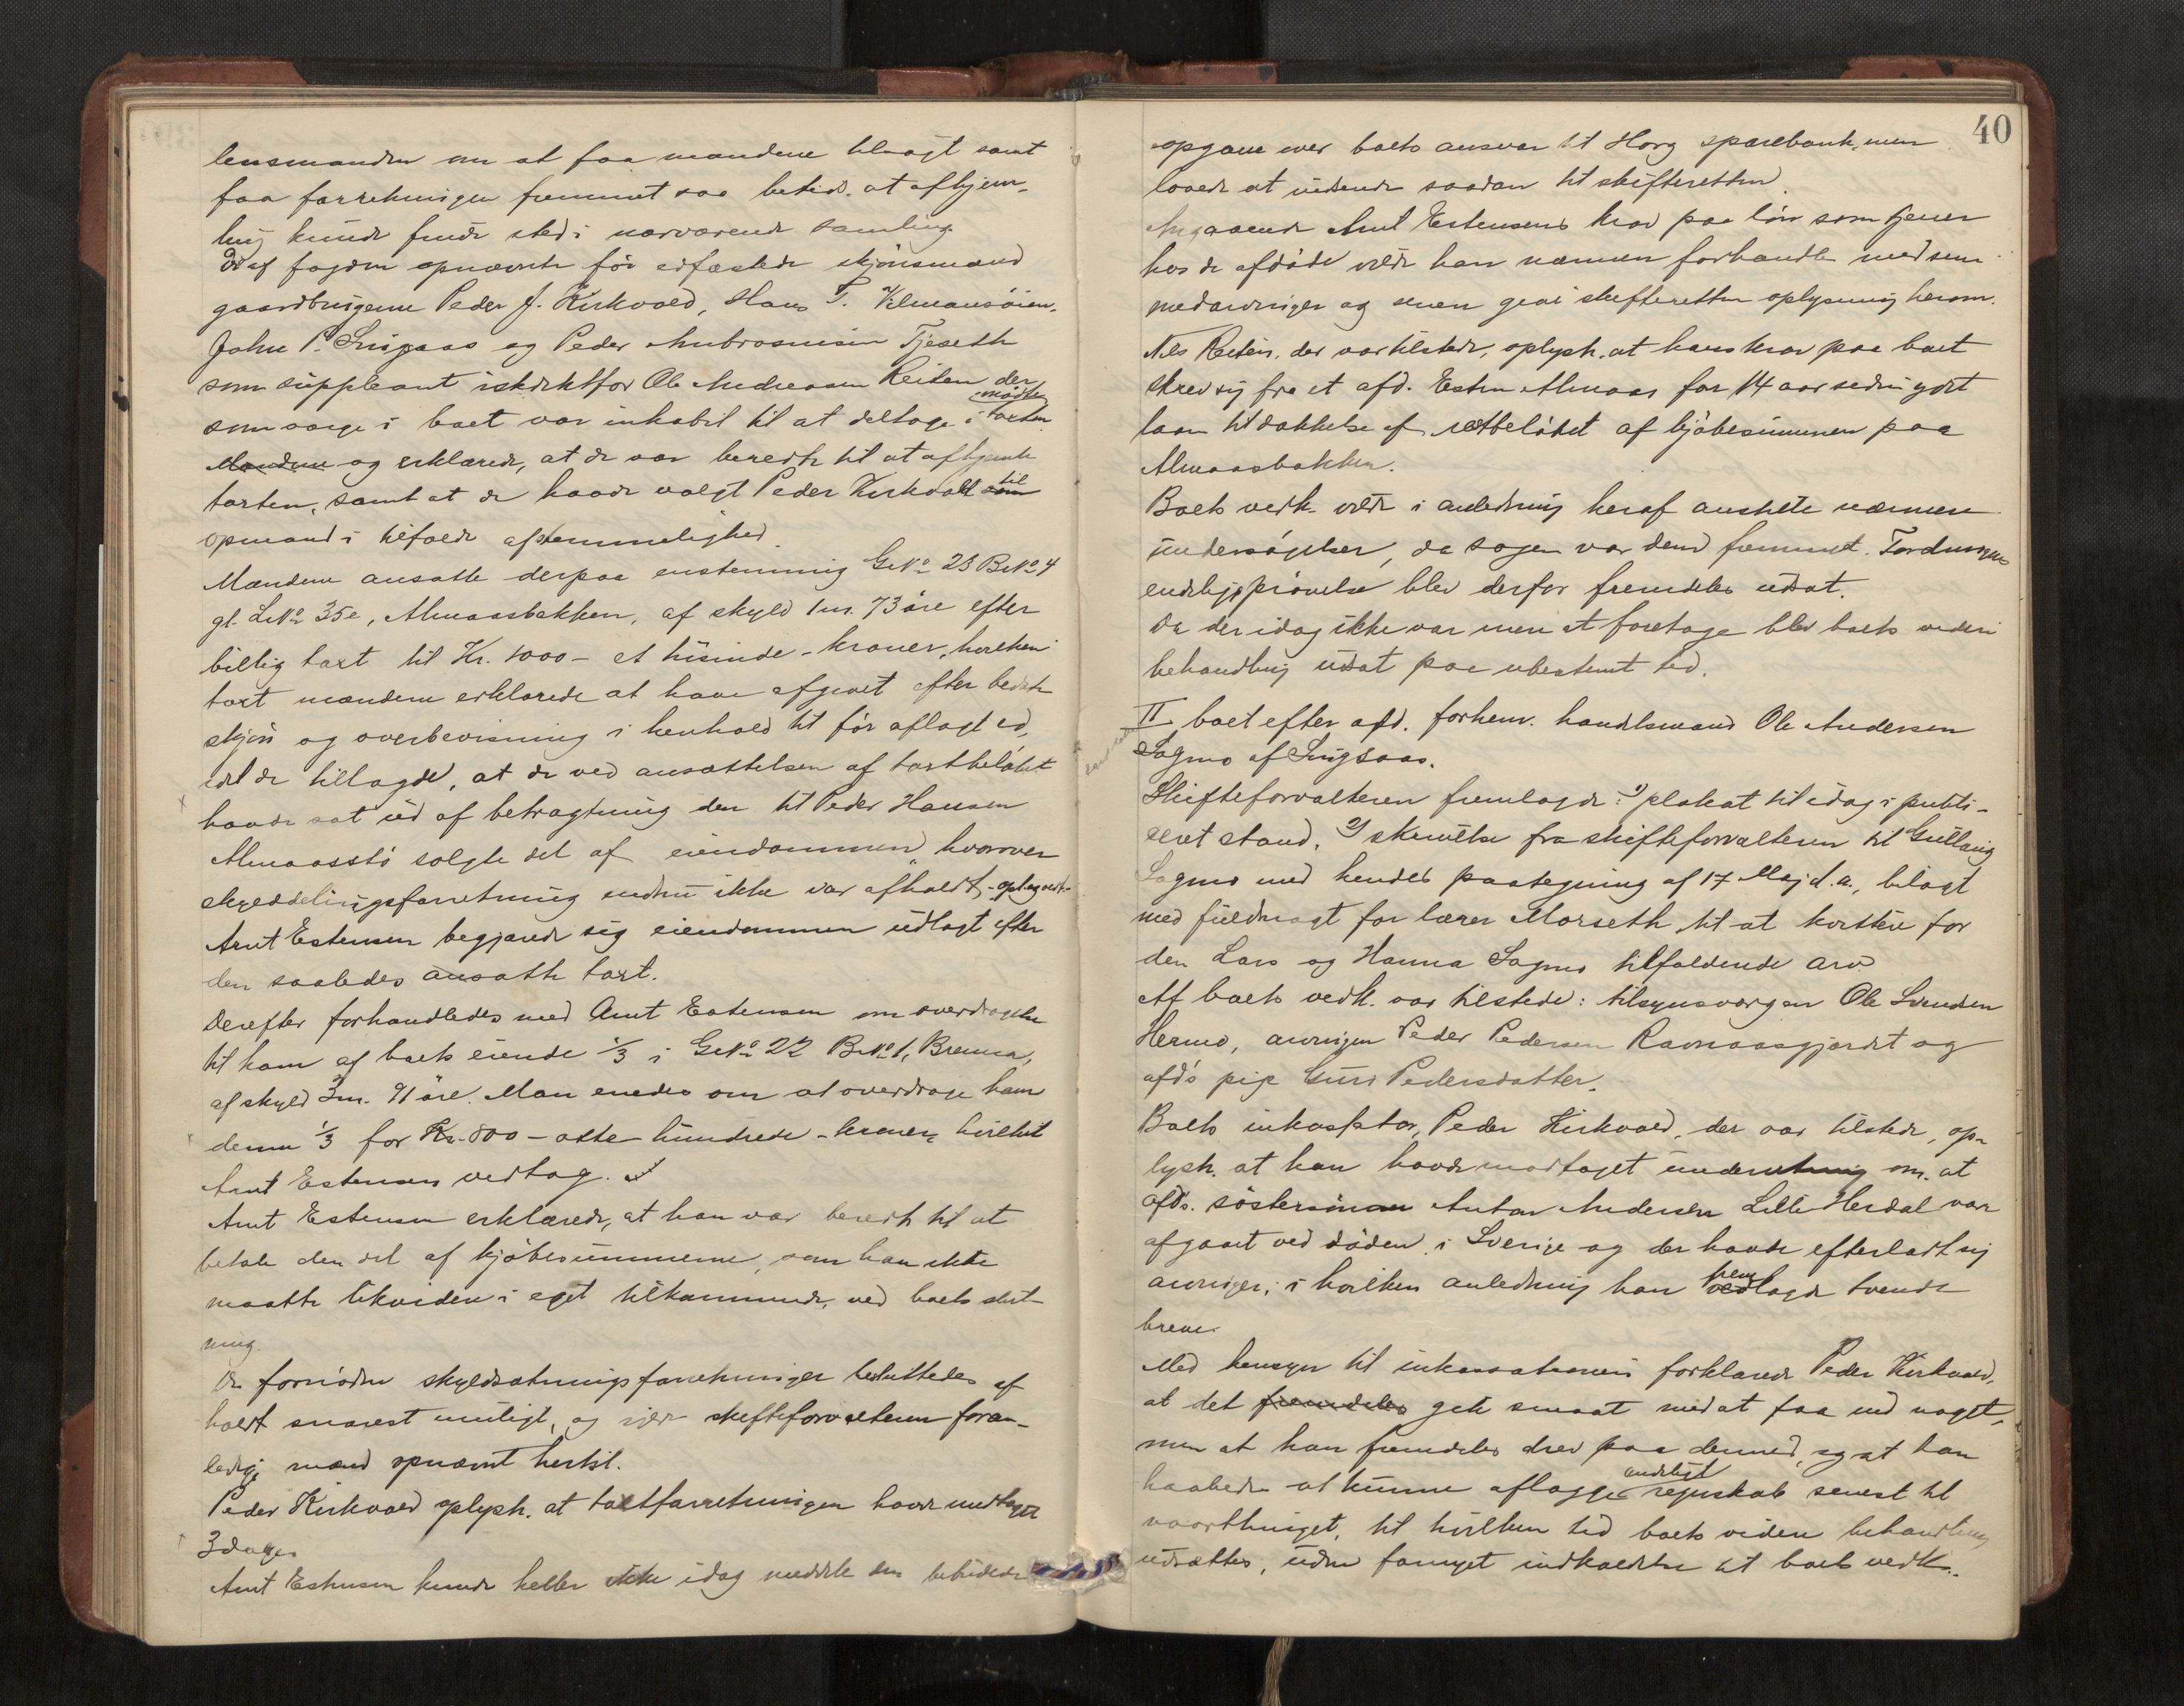 lensmanden om at faa mændene tilsagt samt
faa forretningen fremmet saa betids at afhjem-
ling kunde finde sted i nærværende samling.
De af fogden opnævnte før edfæstede skjønsmænd
gaardbrugerne Peder J. Kirkvold, Hans T. Vilmansøien,
John P. Singsaas og Peder Ambrosiusen Tjeseth
som suppleant istedetfor Ole Andreasen Reiten der
som værge i boet var inhabil til at deltage i taxten mødte
Mændene og erklærede, at de var beredte til at afhjemle
taxten, samt at de havde valgt Peder Kirkvold som til
opmand i tilfælde af stemmelighed.
Mændene ansatte derpaa enstemmig GNo 23 BNo 4
gl. LNo 35e, Almaasbakken, af skyld 1 m. 73 øre efter
billig taxt til Kr. 1000 - et tusinde - kroner, hvilken
taxt mændene erklærede at have afgivet efter bedste
skjøn og overbevisning i henhold til før aflagt ed,
idet de tillagde, at de ved ansættelsen af taxtbeløbet
havde sat ud af betragtning den til Peder Hansen
Almaasstø solgte del af eiendommen, hvorover
skylddelingsforretning endnu ikke var afholdt,
Arnt Estensen begjærede sig eiendommen udlagt efter
den saaledes ansatte taxt.
Derefter forhandledes med Arnt Estensen om overdragelse
til ham af boets eiende 1/3 i GNo 22 BNo 1, Brenna,
af skyld 3 m. 91 øre. Man enedes om at overdrage ham
denne 1/3 for Kr. 800 - otte hundrede - kroner, hvilket
Arnt Estensen vedtog.
Arnt Estensen erklærede, at han var beredt til at
betale den del af kjøbesummerne, som han ikke
maatte likvidere i eget tilkommende, ved boets slut-
ning.
De fornødne skyldsætningsforretninger besluttedes af-
holdt snarest muligt, og vilde skifteforvalteren foran-
ledige mænd opnævnt hertil.
Peder Kirkvold oplyste, at taxtforretningen havde medtaget
3 dage.
Arnt Estensen kunde heller ikke idag meddele den bebudede
40
opgave over boets ansvar til Horg sparebank, men
lovede at indsende saadan til skifteretten.
Angaaende Arnt Estensens krav paa løn som tjener
hos de afdøde vilde han nærmere forhandle med sine
medarvinger og senere give skifteretten oplysning herom.
Nils Reiten, der var tilstede, oplyste, at hans krav paa boet
skrev sig fra et afd. Esten Almaas for 14 aar siden ydet
laan til dækkelse af restbeløbet af kjøbesummen paa
Almaasbakken.
Boets vedk. vilde i anledning heraf anstille nærmere
undersøgelser, da sagen var dem fremmed. Fordringens
endelige prøvelse blev derfor fremdeles udsat.
Da der idag ikke var mere at foretage blev boets videre
behandling udsat paa ubestemt tid.
II boet efter afd. forhenv. handelsmand Ole Andersen
Sagmo af Singsaas.
Skifteforvalteren fremlagde: 1) plakat til idag i publi-
ceret stand, 2) skrivelse fra skifteforvalteren til Gullaug
Sagmo med hendes paategning af 17 Maj d. a., bilagt
med fuldmagt for lærer Morseth til at kvittere for
den Lars og Hanna Sagmo tilfaldende arv.
Af boets vedk. var tilstede: tilsynsværgen Ole Svendsen
Hermo, arvingen Peder Pedersen Ravnaasgjærdet og
afdøs pige Guri Pedersdatter.
Boets inkassator, Peder Kirkvold, der var tilstede, op-
lyste, at han havde modtaget underretning om, at
afds. søstersøn Anton Andersen Lille Herdal var
afgaaet ved døden i Sverige og der havde efterladt sig
arvinger, i hvilken anledning han ved frem lagde tvende
breve.
Med hensyn til inkassationen forklarede Peder Kirkvold,
at det fremdeles gik smaat med at faa ind noget,
men at han fremdeles drev paa dermed, og at han
haabede at kunne aflægge endeligt regnskab senest til
vaarthinget, til hvilken tid boets videre behandling
udsattes, uden fornyet indkaldelse af boets vedk.